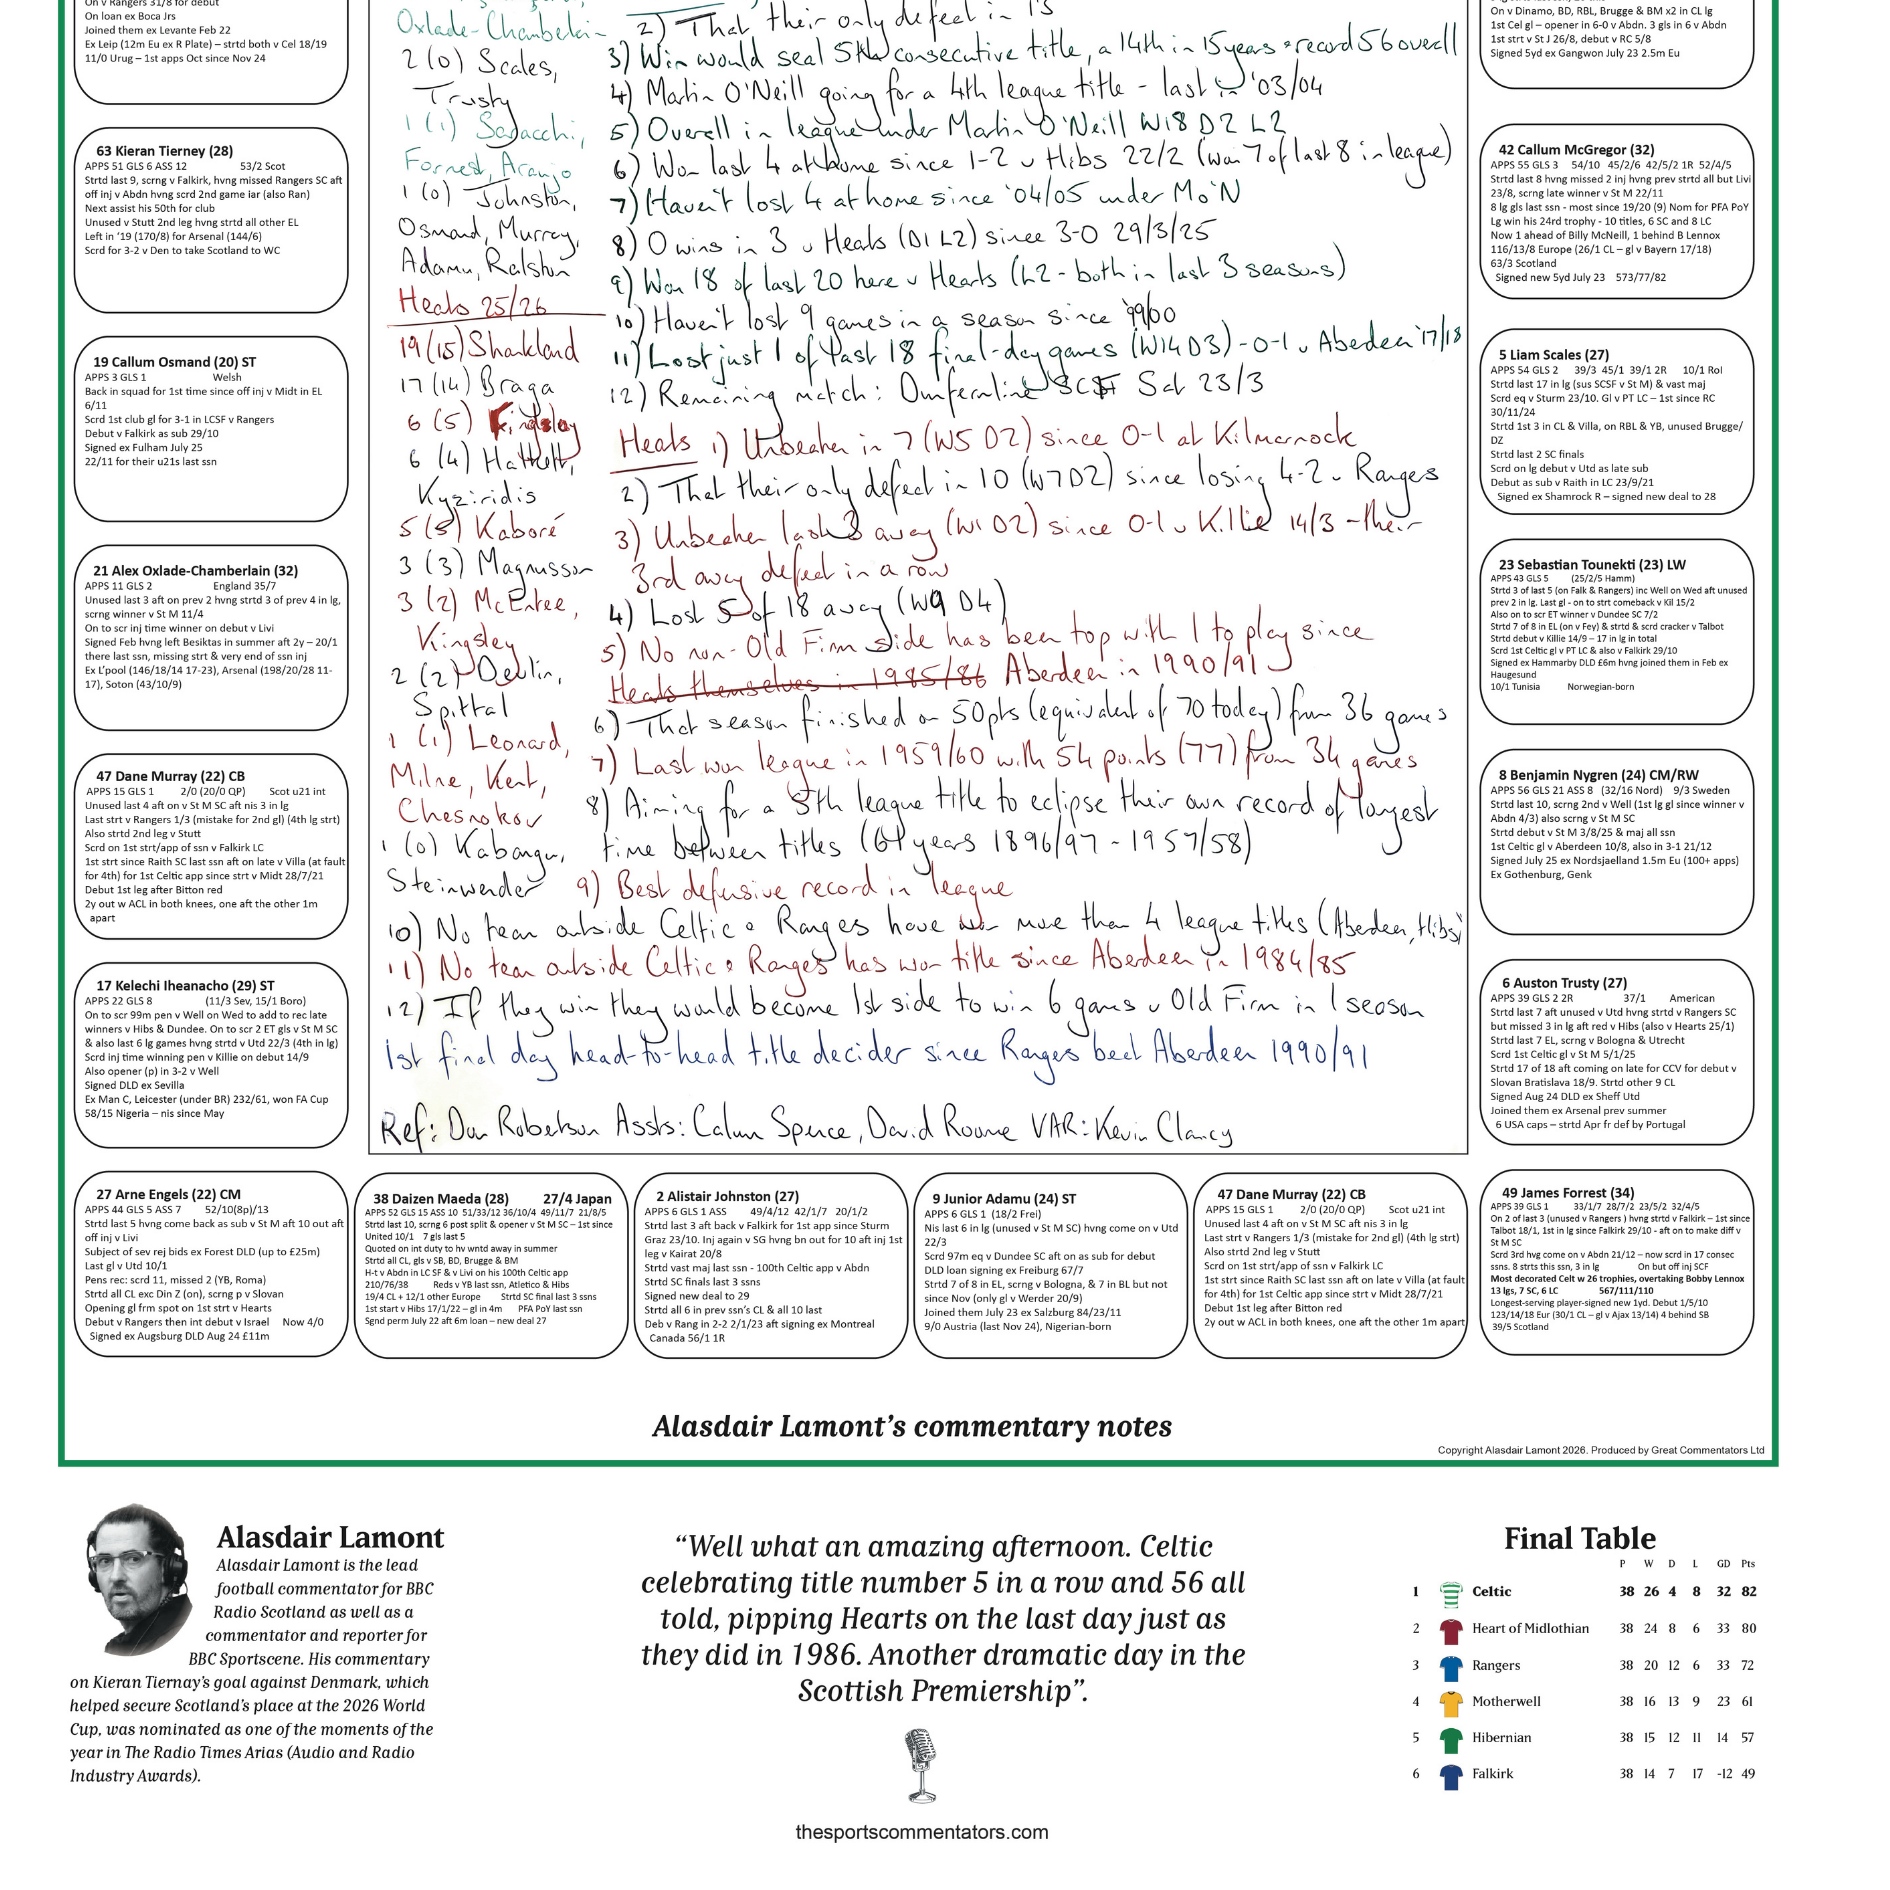 On v Rangers 31/8 for debut
On loan ex Boca Jrs
Joined them ex Levante Feb 22
Ex Leip (12m Eu ex R Plate) – strtd both v Cel 18/19
11/0 Urug – 1st apps Oct since Nov 24
63 Kieran Tierney (28)
APPS 51 GLS 6 ASS 12 53/2 Scot
Strtd last 9, scrng v Falkirk, hvng missed Rangers SC aft
off inj v Abdn hvng scrd 2nd game iar (also Ran)
Next assist his 50th for club
Unused v Stutt 2nd leg hvng strtd all other EL
Left in ‘19 (170/8) for Arsenal (144/6)
Scrd for 3-2 v Den to take Scotland to WC
19 Callum Osmand (20) ST
APPS 3 GLS 1 Welsh
Back in squad for 1st time since off inj v Midt in EL
6/11
Scrd 1st club gl for 3-1 in LCSF v Rangers
Debut v Falkirk as sub 29/10
Signed ex Fulham July 25
22/11 for their u21s last ssn
21 Alex Oxlade-Chamberlain (32)
APPS 11 GLS 2 England 35/7
Unused last 3 aft on prev 2 hvng strtd 3 of prev 4 in lg,
scrng winner v St M 11/4
On to scr inj time winner on debut v Livi
Signed Feb hvng left Besiktas in summer aft 2y – 20/1
there last ssn, missing strt & very end of ssn inj
Ex L’pool (146/18/14 17-23), Arsenal (198/20/28 11-
17), Soton (43/10/9)
47 Dane Murray (22) CB
APPS 15 GLS 1 2/0 (20/0 QP) Scot u21 int
Unused last 4 aft on v St M SC aft nis 3 in lg
Last strt v Rangers 1/3 (mistake for 2nd gl) (4th lg strt)
Also strtd 2nd leg v Stutt
Scrd on 1st strt/app of ssn v Falkirk LC
1st strt since Raith SC last ssn aft on late v Villa (at fault
for 4th) for 1st Celtic app since strt v Midt 28/7/21
Debut 1st leg after Bitton red
2y out w ACL in both knees, one aft the other 1m
apart
17 Kelechi Iheanacho (29) ST
APPS 22 GLS 8 (11/3 Sev, 15/1 Boro)
On to scr 99m pen v Well on Wed to add to rec late
winners v Hibs & Dundee. On to scr 2 ET gls v St M SC
& also last 6 lg games hvng strtd v Utd 22/3 (4th in lg)
Scrd inj time winning pen v Killie on debut 14/9
Also opener (p) in 3-2 v Well
Signed DLD ex Sevilla
Ex Man C, Leicester (under BR) 232/61, won FA Cup
58/15 Nigeria – nis since May
Oxlade-Chamberlain
2 (0) Scales,
Trusty
1 (1) Saracchi,
Forrest, Araujo
1 (0) Johnston,
Osmand, Murray,
Adamu, Ralston
Hearts 25/26
19 (15) Shankland
17 (14) Braga
6 (5) Kingsley
6 (4) Halkett,
Kyziridis
5 (5) Kaboré
3 (3) Magnusson
3 (2) McEntee,
Kingsley
2 (2) Devlin,
Spittal
1 (1) Leonard,
Milne, Kent,
Chesnokov
1 (0) Kabangu,
Steinwender
2) That their only defeat in 13
3) Win would seal 5th consecutive title, a 14th in 15 years & record 56 overall
4) Martin O'Neill going for a 4th league title - last in '03/04
5) Overall in league under Martin O'Neill W18 D2 L2
6) Won last 4 at home since 1-2 v Hibs 22/2 (won 7 of last 8 in league)
7) Haven't lost 4 at home since '04/05 under Mo'N
8) 0 wins in 3 v Hearts (D1 L2) since 3-0 29/3/25
9) Won 18 of last 20 here v Hearts (L2 - both in last 3 seasons)
10) Haven't lost 9 games in a season since '99/00
11) Lost just 1 of last 18 final-day games (W14 D3) - 0-1 v Aberdeen '17/18
12) Remaining match: Dunfermline SCF Sat 23/3
Hearts 1) Unbeaten in 7 (W5 D2) since 0-1 at Kilmarnock
2) That their only defeat in 10 (W7 D2) since losing 4-2 v Rangers
3) Unbeaten last 3 away (W1 D2) since 0-1 v Killie 14/3 - their
3rd away defeat in a row
4) Lost 5 of 18 away (W9 D4)
5) No non-Old Firm side has been top with 1 to play since
Hearts themselves in 1985/86 Aberdeen in 1990/91
6) That season finished on 50pts (equivalent of 70 today) from 36 games
7) Last won league in 1959/60 with 54 points (77) from 34 games
8) Aiming for a 5th league title to eclipse their own record of longest
time between titles (61 years 1896/97 - 1957/58)
9) Best defensive record in league
10) No team outside Celtic & Rangers have won more than 4 league titles (Aberdeen, Hibs)
11) No team outside Celtic & Rangers has won title since Aberdeen in 1984/85
12) If they win they would become 1st side to win 6 games v Old Firm in 1 season
1st final day head-to-head title decider since Rangers beat Aberdeen 1990/91
Ref: Don Robertson Assts: Calum Spence, David Roome VAR: Kevin Clancy
On v Dinamo, BD, RBL, Brugge & BM x2 in CL lg
1st Cel gl – opener in 6-0 v Abdn. 3 gls in 6 v Abdn
1st strt v St J 26/8, debut v RC 5/8
Signed 5yd ex Gangwon July 23 2.5m Eu
42 Callum McGregor (32)
APPS 55 GLS 3 54/10 45/2/6 42/5/2 1R 52/4/5
Strtd last 8 hvng missed 2 inj hvng prev strtd all but Livi
23/8, scrng late winner v St M 22/11
8 lg gls last ssn - most since 19/20 (9) Nom for PFA PoY
Lg win his 24rd trophy - 10 titles, 6 SC and 8 LC
Now 1 ahead of Billy McNeill, 1 behind B Lennox
116/13/8 Europe (26/1 CL – gl v Bayern 17/18)
63/3 Scotland
Signed new 5yd July 23 573/77/82
5 Liam Scales (27)
APPS 54 GLS 2 39/3 45/1 39/1 2R 10/1 RoI
Strtd last 17 in lg (sus SCSF v St M) & vast maj
Scrd eq v Sturm 23/10. Gl v PT LC – 1st since RC
30/11/24
Strtd 1st 3 in CL & Villa, on RBL & YB, unused Brugge/
DZ
Strtd last 2 SC finals
Scrd on lg debut v Utd as late sub
Debut as sub v Raith in LC 23/9/21
Signed ex Shamrock R – signed new deal to 28
23 Sebastian Tounekti (23) LW
APPS 43 GLS 5 (25/2/5 Hamm)
Strtd 3 of last 5 (on Falk & Rangers) inc Well on Wed aft unused
prev 2 in lg. Last gl - on to strt comeback v Kil 15/2
Also on to scr ET winner v Dundee SC 7/2
Strtd 7 of 8 in EL (on v Fey) & strtd & scrd cracker v Talbot
Strtd debut v Killie 14/9 – 17 in lg in total
Scrd 1st Celtic gl v PT LC & also v Falkirk 29/10
Signed ex Hammarby DLD £6m hvng joined them in Feb ex
Haugesund
10/1 Tunisia Norwegian-born
8 Benjamin Nygren (24) CM/RW
APPS 56 GLS 21 ASS 8 (32/16 Nord) 9/3 Sweden
Strtd last 10, scrng 2nd v Well (1st lg gl since winner v
Abdn 4/3) also scrng v St M SC
Strtd debut v St M 3/8/25 & maj all ssn
1st Celtic gl v Aberdeen 10/8, also in 3-1 21/12
Signed July 25 ex Nordsjaelland 1.5m Eu (100+ apps)
Ex Gothenburg, Genk
6 Auston Trusty (27)
APPS 39 GLS 2 2R 37/1 American
Strtd last 7 aft unused v Utd hvng strtd v Rangers SC
but missed 3 in lg aft red v Hibs (also v Hearts 25/1)
Strtd last 7 EL, scrng v Bologna & Utrecht
Scrd 1st Celtic gl v St M 5/1/25
Strtd 17 of 18 aft coming on late for CCV for debut v
Slovan Bratislava 18/9. Strtd other 9 CL
Signed Aug 24 DLD ex Sheff Utd
Joined them ex Arsenal prev summer
6 USA caps – strtd Apr fr def by Portugal
27 Arne Engels (22) CM
APPS 44 GLS 5 ASS 7 52/10(8p)/13
Strtd last 5 hvng come back as sub v St M aft 10 out aft
off inj v Livi
Subject of sev rej bids ex Forest DLD (up to £25m)
Last gl v Utd 10/1
Pens rec: scrd 11, missed 2 (YB, Roma)
Strtd all CL exc Din Z (on), scrng p v Slovan
Opening gl frm spot on 1st strt v Hearts
Debut v Rangers then int debut v Israel Now 4/0
Signed ex Augsburg DLD Aug 24 £11m
38 Daizen Maeda (28) 27/4 Japan
APPS 52 GLS 15 ASS 10 51/33/12 36/10/4 49/11/7 21/8/5
Strtd last 10, scrng 6 post split & opener v St M SC – 1st since
United 10/1 7 gls last 5
Quoted on int duty to hv wntd away in summer
Strtd all CL, gls v SB, BD, Brugge & BM
H-t v Abdn in LC SF & v Livi on his 100th Celtic app
210/76/38 Reds v YB last ssn, Atletico & Hibs
19/4 CL + 12/1 other Europe Strtd SC final last 3 ssns
1st start v Hibs 17/1/22 – gl in 4m PFA PoY last ssn
Sgnd perm July 22 aft 6m loan – new deal 27
2 Alistair Johnston (27)
APPS 6 GLS 1 ASS 49/4/12 42/1/7 20/1/2
Strtd last 3 aft back v Falkirk for 1st app since Sturm
Graz 23/10. Inj again v SG hvng bn out for 10 aft inj 1st
leg v Kairat 20/8
Strtd vast maj last ssn - 100th Celtic app v Abdn
Strtd SC finals last 3 ssns
Signed new deal to 29
Strtd all 6 in prev ssn’s CL & all 10 last
Deb v Rang in 2-2 2/1/23 aft signing ex Montreal
Canada 56/1 1R
9 Junior Adamu (24) ST
APPS 6 GLS 1 (18/2 Frei)
Nis last 6 in lg (unused v St M SC) hvng come on v Utd
22/3
Scrd 97m eq v Dundee SC aft on as sub for debut
DLD loan signing ex Freiburg 67/7
Strtd 7 of 8 in EL, scrng v Bologna, & 7 in BL but not
since Nov (only gl v Werder 20/9)
Joined them July 23 ex Salzburg 84/23/11
9/0 Austria (last Nov 24), Nigerian-born
47 Dane Murray (22) CB
APPS 15 GLS 1 2/0 (20/0 QP) Scot u21 int
Unused last 4 aft on v St M SC aft nis 3 in lg
Last strt v Rangers 1/3 (mistake for 2nd gl) (4th lg strt)
Also strtd 2nd leg v Stutt
Scrd on 1st strt/app of ssn v Falkirk LC
1st strt since Raith SC last ssn aft on late v Villa (at fault
for 4th) for 1st Celtic app since strt v Midt 28/7/21
Debut 1st leg after Bitton red
2y out w ACL in both knees, one aft the other 1m apart
49 James Forrest (34)
APPS 39 GLS 1 33/1/7 28/7/2 23/5/2 32/4/5
On 2 of last 3 (unused v Rangers ) hvng strtd v Falkirk – 1st since
Talbot 18/1, 1st in lg since Falkirk 29/10 - aft on to make diff v
St M SC
Scrd 3rd hvg come on v Abdn 21/12 – now scrd in 17 consec
ssns. 8 strts this ssn, 3 in lg On but off inj SCF
Most decorated Celt w 26 trophies, overtaking Bobby Lennox
13 lgs, 7 SC, 6 LC 567/111/110
Longest-serving player-signed new 1yd. Debut 1/5/10
123/14/18 Eur (30/1 CL – gl v Ajax 13/14) 4 behind SB
39/5 Scotland
Alasdair Lamont’s commentary notes
Copyright Alasdair Lamont 2026. Produced by Great Commentators Ltd
Alasdair Lamont
Alasdair Lamont is the lead
football commentator for BBC
Radio Scotland as well as a
commentator and reporter for
BBC Sportscene. His commentary
on Kieran Tierney’s goal against Denmark, which
helped secure Scotland’s place at the 2026 World
Cup, was nominated as one of the moments of the
year in The Radio Times Arias (Audio and Radio
Industry Awards).
“Well what an amazing afternoon. Celtic
celebrating title number 5 in a row and 56 all
told, pipping Hearts on the last day just as
they did in 1986. Another dramatic day in the
Scottish Premiership”.
thesportscommentators.com
Final Table
P W D L GD Pts
1 Celtic 38 26 4 8 32 82
2 Heart of Midlothian 38 24 8 6 33 80
3 Rangers 38 20 12 6 33 72
4 Motherwell 38 16 13 9 23 61
5 Hibernian 38 15 12 11 14 57
6 Falkirk 38 14 7 17 -12 49